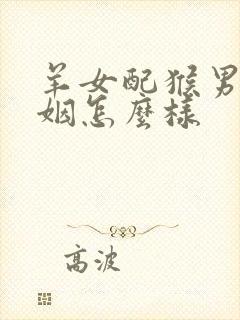 羊女配猴男
姻怎麼樣
高波